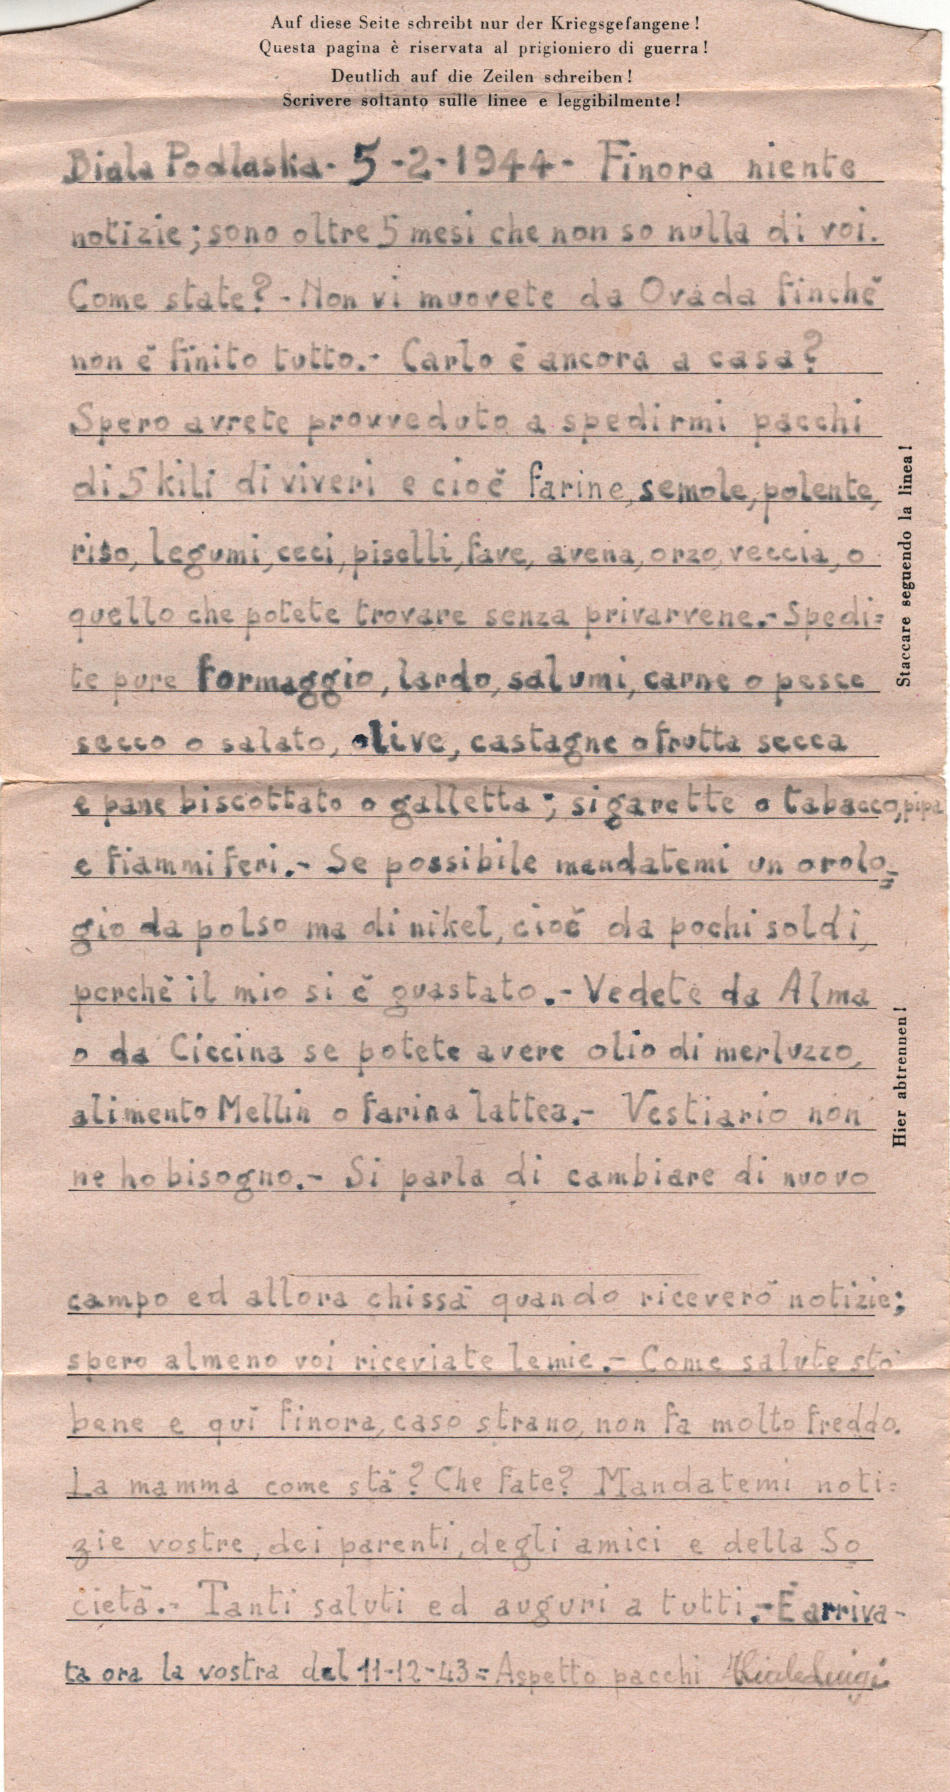 Auf diese Seite schreibt nur der Kriegsgefangene!
Questa pagina è riservata al prigioniero di guerra!
Deutlich auf die Zeilen schreiben!
Scrivere soltanto sulle linee e leggibilmente!
Biala Podlaska - 5 - 2 - 1944 - Finora niente
notizie; sono oltre 5 mesi che non so nulla di voi.
Come state? - Non vi muovete da Ovada finchè
non è finito tutto. - Carlo è ancora a casa?
Spero avrete provveduto a spedirmi pacchi
di 5 kili di viveri e cioè farine, semole, polente,
riso, legumi, ceci, piselli, fave, avena, orzo, veccia, o
quello che potete trovare senza privarvene. - Spedi=
te pure formaggio, lardo, salumi, carne o pesce
secco o salato, olive, castagne o frutta secca
e pane biscottato o galletta; sigarette o tabacco, pipa
e fiammiferi. - Se possibile mandatemi un orolo=
gio da polso ma di nikel, cioè da pochi soldi,
perchè il mio si è guastato. - Vedete da Alma
o da Ciccina se potete avere olio di merluzzo,
alimento Mellin o farina lattea. - Vestiario non
ne ho bisogno. - Si parla di cambiare di nuovo
campo ed allora chissà quando riceverò notizie;
spero almeno voi riceviate le mie. - Come salute stò
bene e quì finora, caso strano, non fa molto freddo.
La mamma come stà? Che fate? Mandatemi noti=
zie vostre, dei parenti, degli amici e della So
cietà. - Tanti saluti ed auguri a tutti. - È arriva-
ta ora la vostra del 11-12-43 = Aspetto pacchi Luigi
Staccare seguendo la linea!
Hier abtrennen!